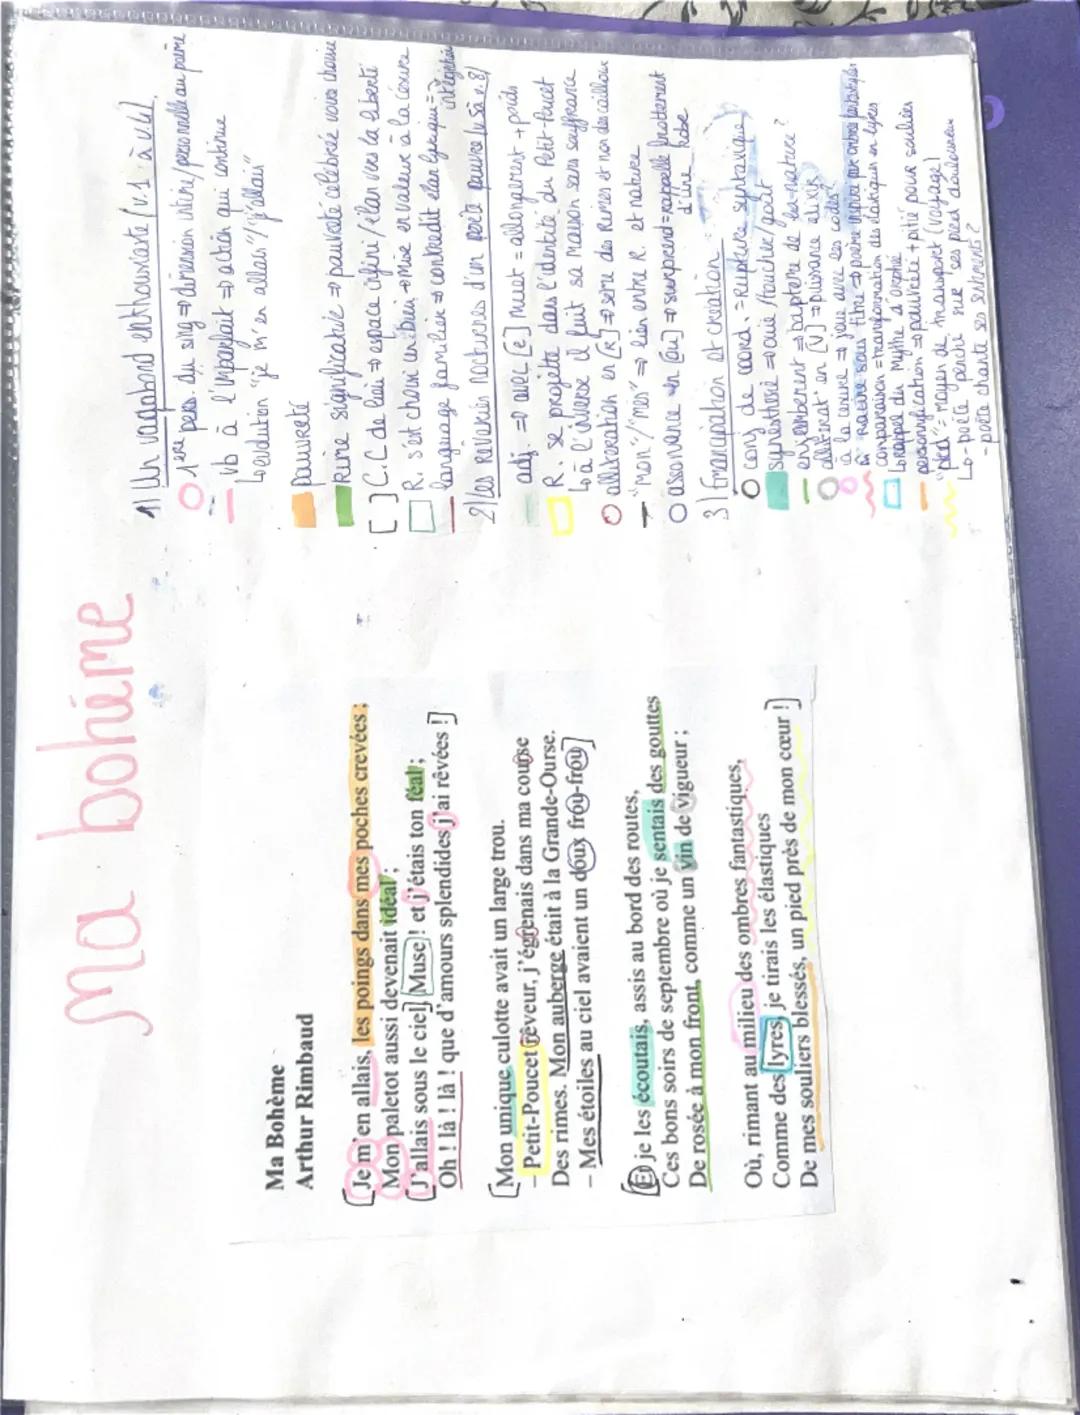 Ma bohème
Ma Bohème
Arthur Rimbaud
[Je m'en allais, les poings dans mes poches crevées ;
Mon paletot aussi devenait idéal ;
J'allais sous le ciel, Muse ! et j'étais ton féal ;
Oh ! là ! là ! que d'amours splendides j'ai rêvées !]
[Mon unique culotte avait un large trou.
– Petit-Poucet rêveur, j'égrenais dans ma course
Des rimes. Mon auberge était à la Grande-Ourse.
– Mes étoiles au ciel avaient un doux frou-frou]
[Et je les écoutais, assis au bord des routes,
Ces bons soirs de septembre où je sentais des gouttes
De rosée à mon front, comme un vin de vigueur ;
Où, rimant au milieu des ombres fantastiques,
Comme des lyres, je tirais les élastiques
De mes souliers blessés, un pied près de mon cœur !]
1) Un vagabond enthousiaste (v.1 à v.4)
1ère pers. du sing => dimension intime/personnelle au poème
vb à l'imparfait => action qui continue
évolution "je m'en allais"/"j'allais"
pauvreté
Rime significative => pauvreté célébrée vous choisie
[ ] C.C de lieu => espace infini/élan vers la liberté
R. s'est choisi un bien => mise en valeur à la césure
language familier => contredit élan lyrique =>
2) Les rêveries nocturnes d'un poète (v.5 à v.8)
adj. => avec [e] muet = allongement + poids
R. se projette dans l'identité du Petit-Poucet
à l'inverse il fuit sa maison sans souffrance
allitération en [R] => sème des Rimes et non des cailloux
"mon"/"mes" => lien entre R. et nature
assonance en [ou] => surprend = rappelle frottement
d'une robe
3) Emancipation et création
conj de coord. => Rupture syntaxique
synesthésie => ouïe/toucher/goût
enjambement => baptème de la nature ?
allitérat° en [V] => puissance elixir
à la césure => joue avec les codes
comparaison = transformation des élastiques en lyres
rappel du mythe d'orphée
personnification => pauvreté + pitié pour souliers
"pied" = moyen de transport (voyage)
- poète penché sur ses pied douloureux
- poète chante ses sentiments ?